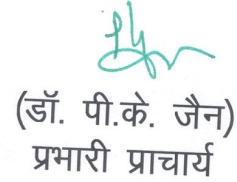 (डॉ. पी.के. जैन)
प्रभारी प्राचार्य